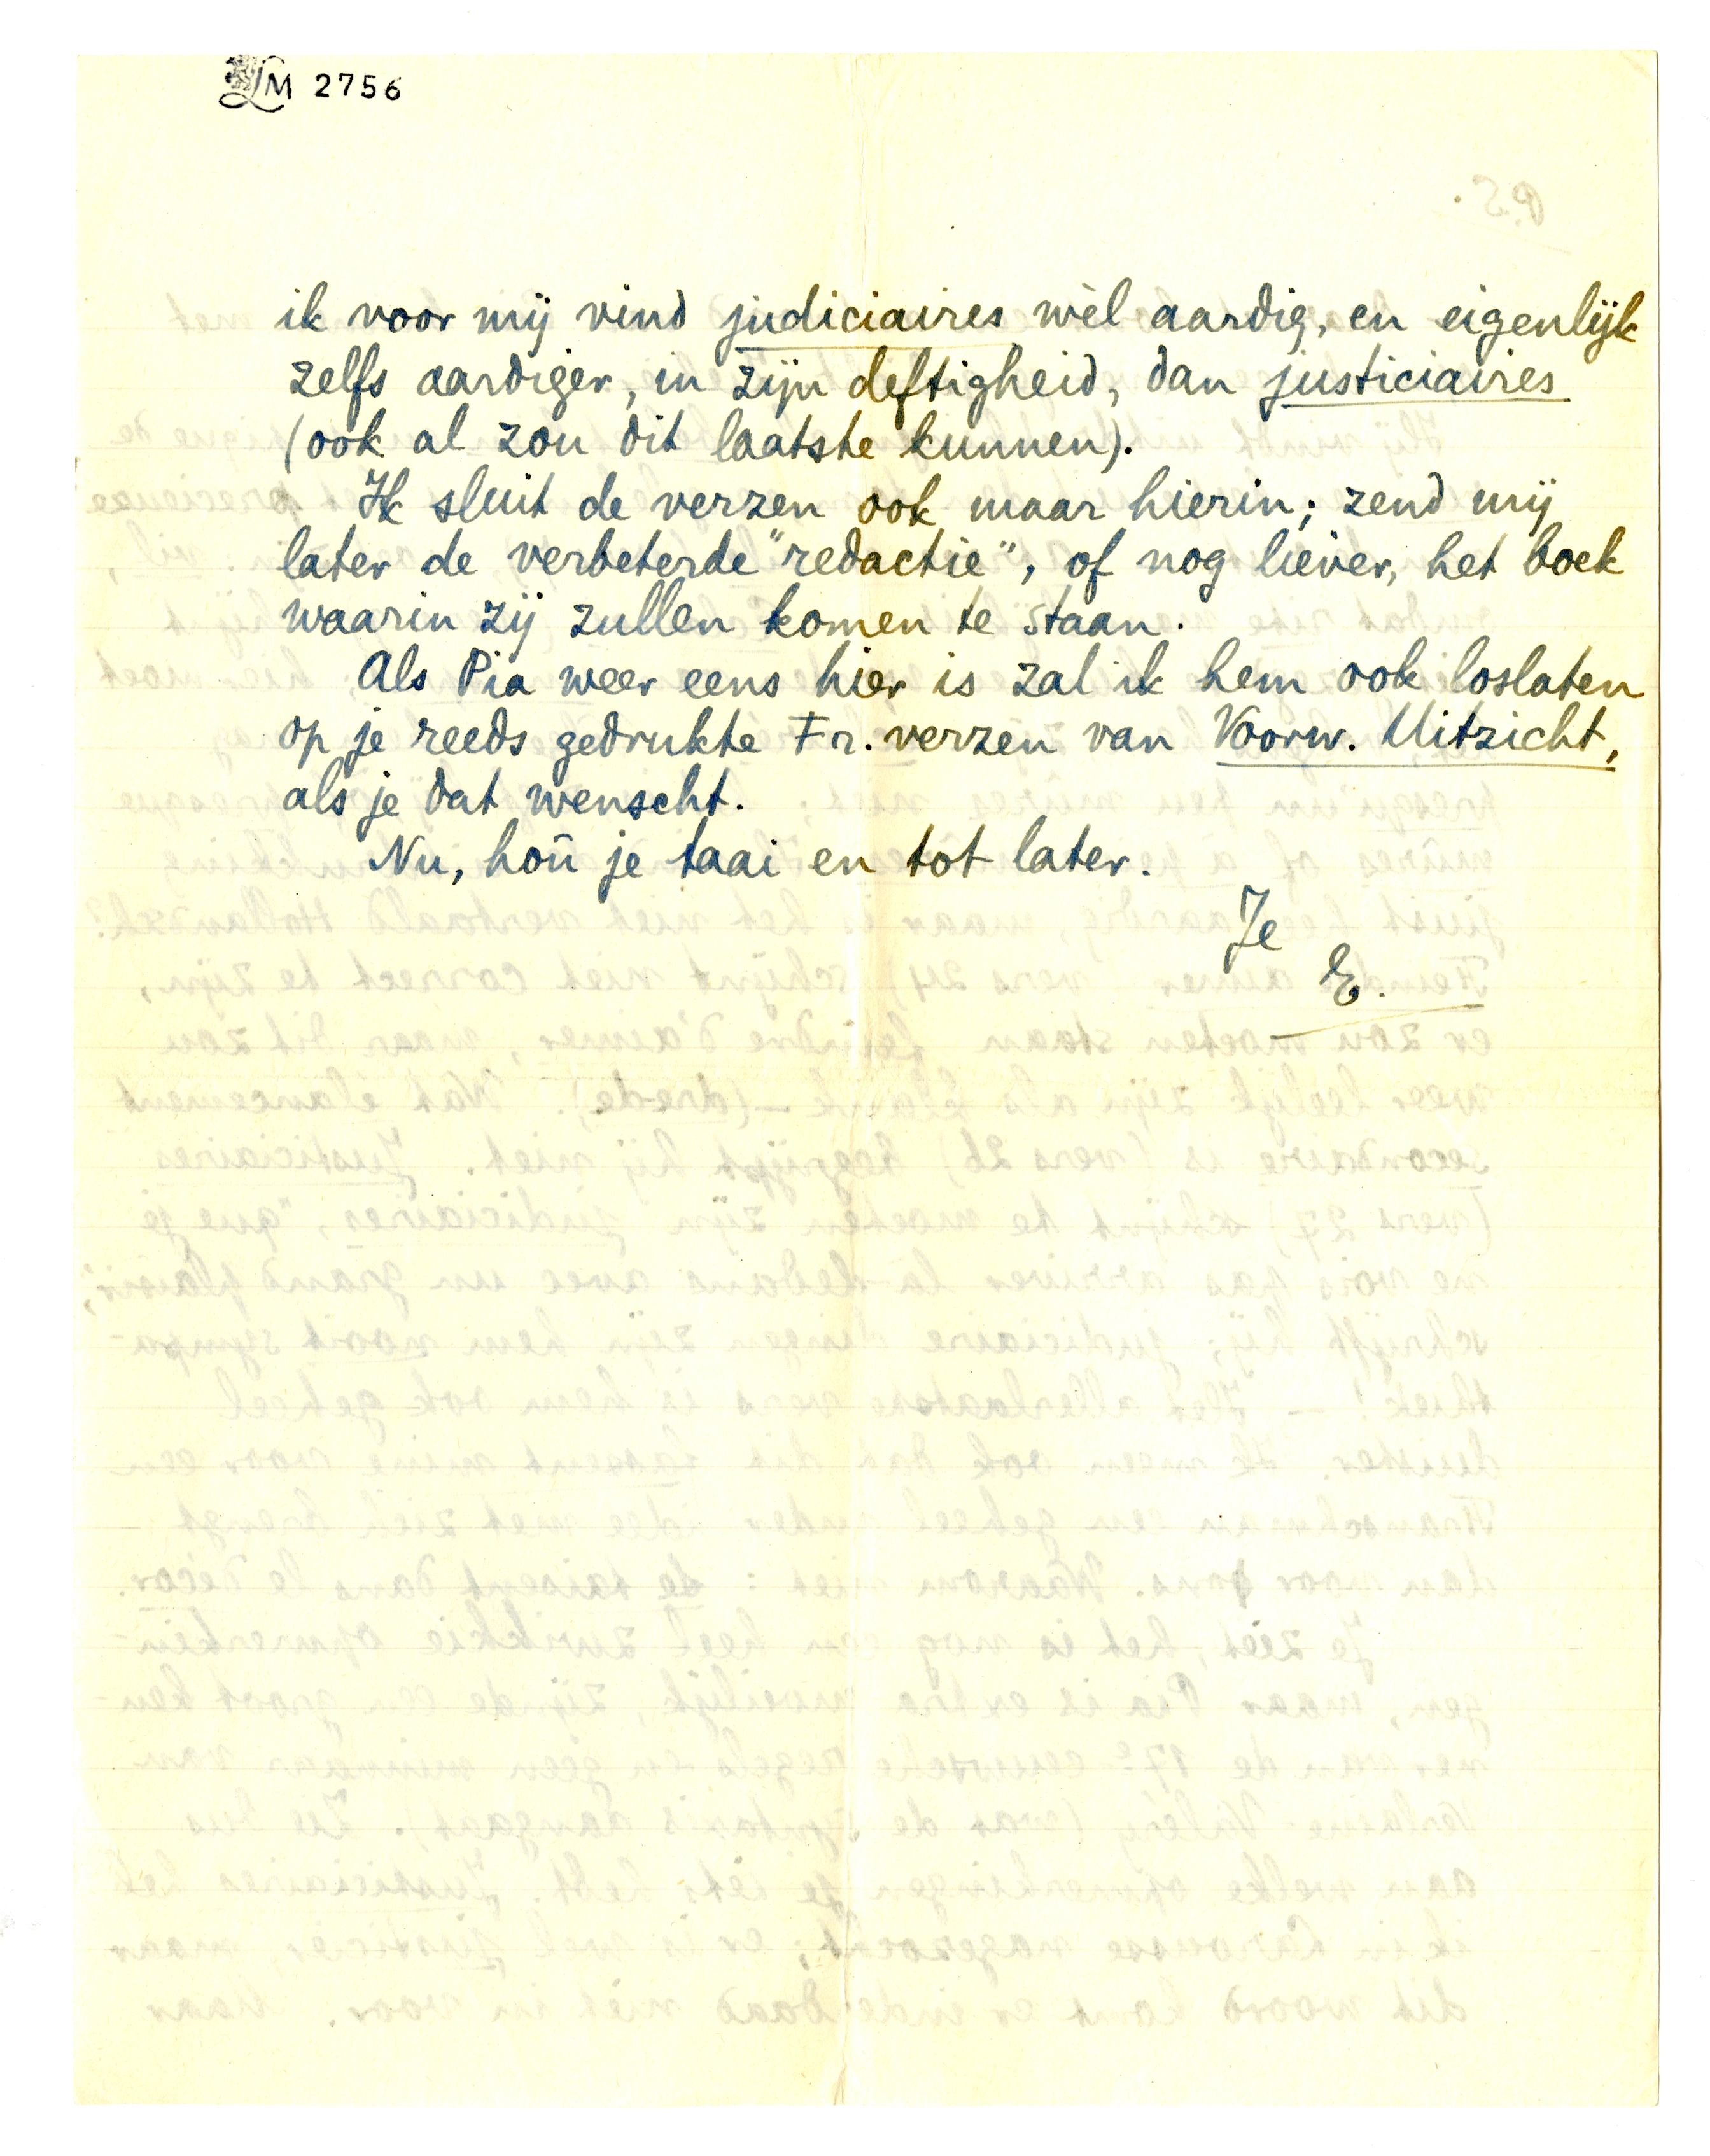 LM 2756
ik voor mij vind judiciaires wèl aardig, en eigenlijk
zelfs aardiger, in zijn deftigheid, dan justiciaires
(ook al zou dit laatste kunnen).
Ik sluit de verzen ook maar hierin; zend mij
later de verbeterde "redactie", of nog liever, het boek
waarin zij zullen komen te staan.
Als Pia weer eens hier is zal ik hem ook loslaten
op je reeds gedrukte Fr. verzen van Voorw. Uitzicht,
als je dat wenscht.
Nu, hoû je taai en tot later.
Je
E.